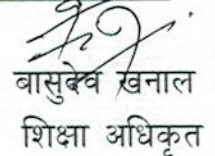 बासुदेव खनाल
शिक्षा अधिकृत